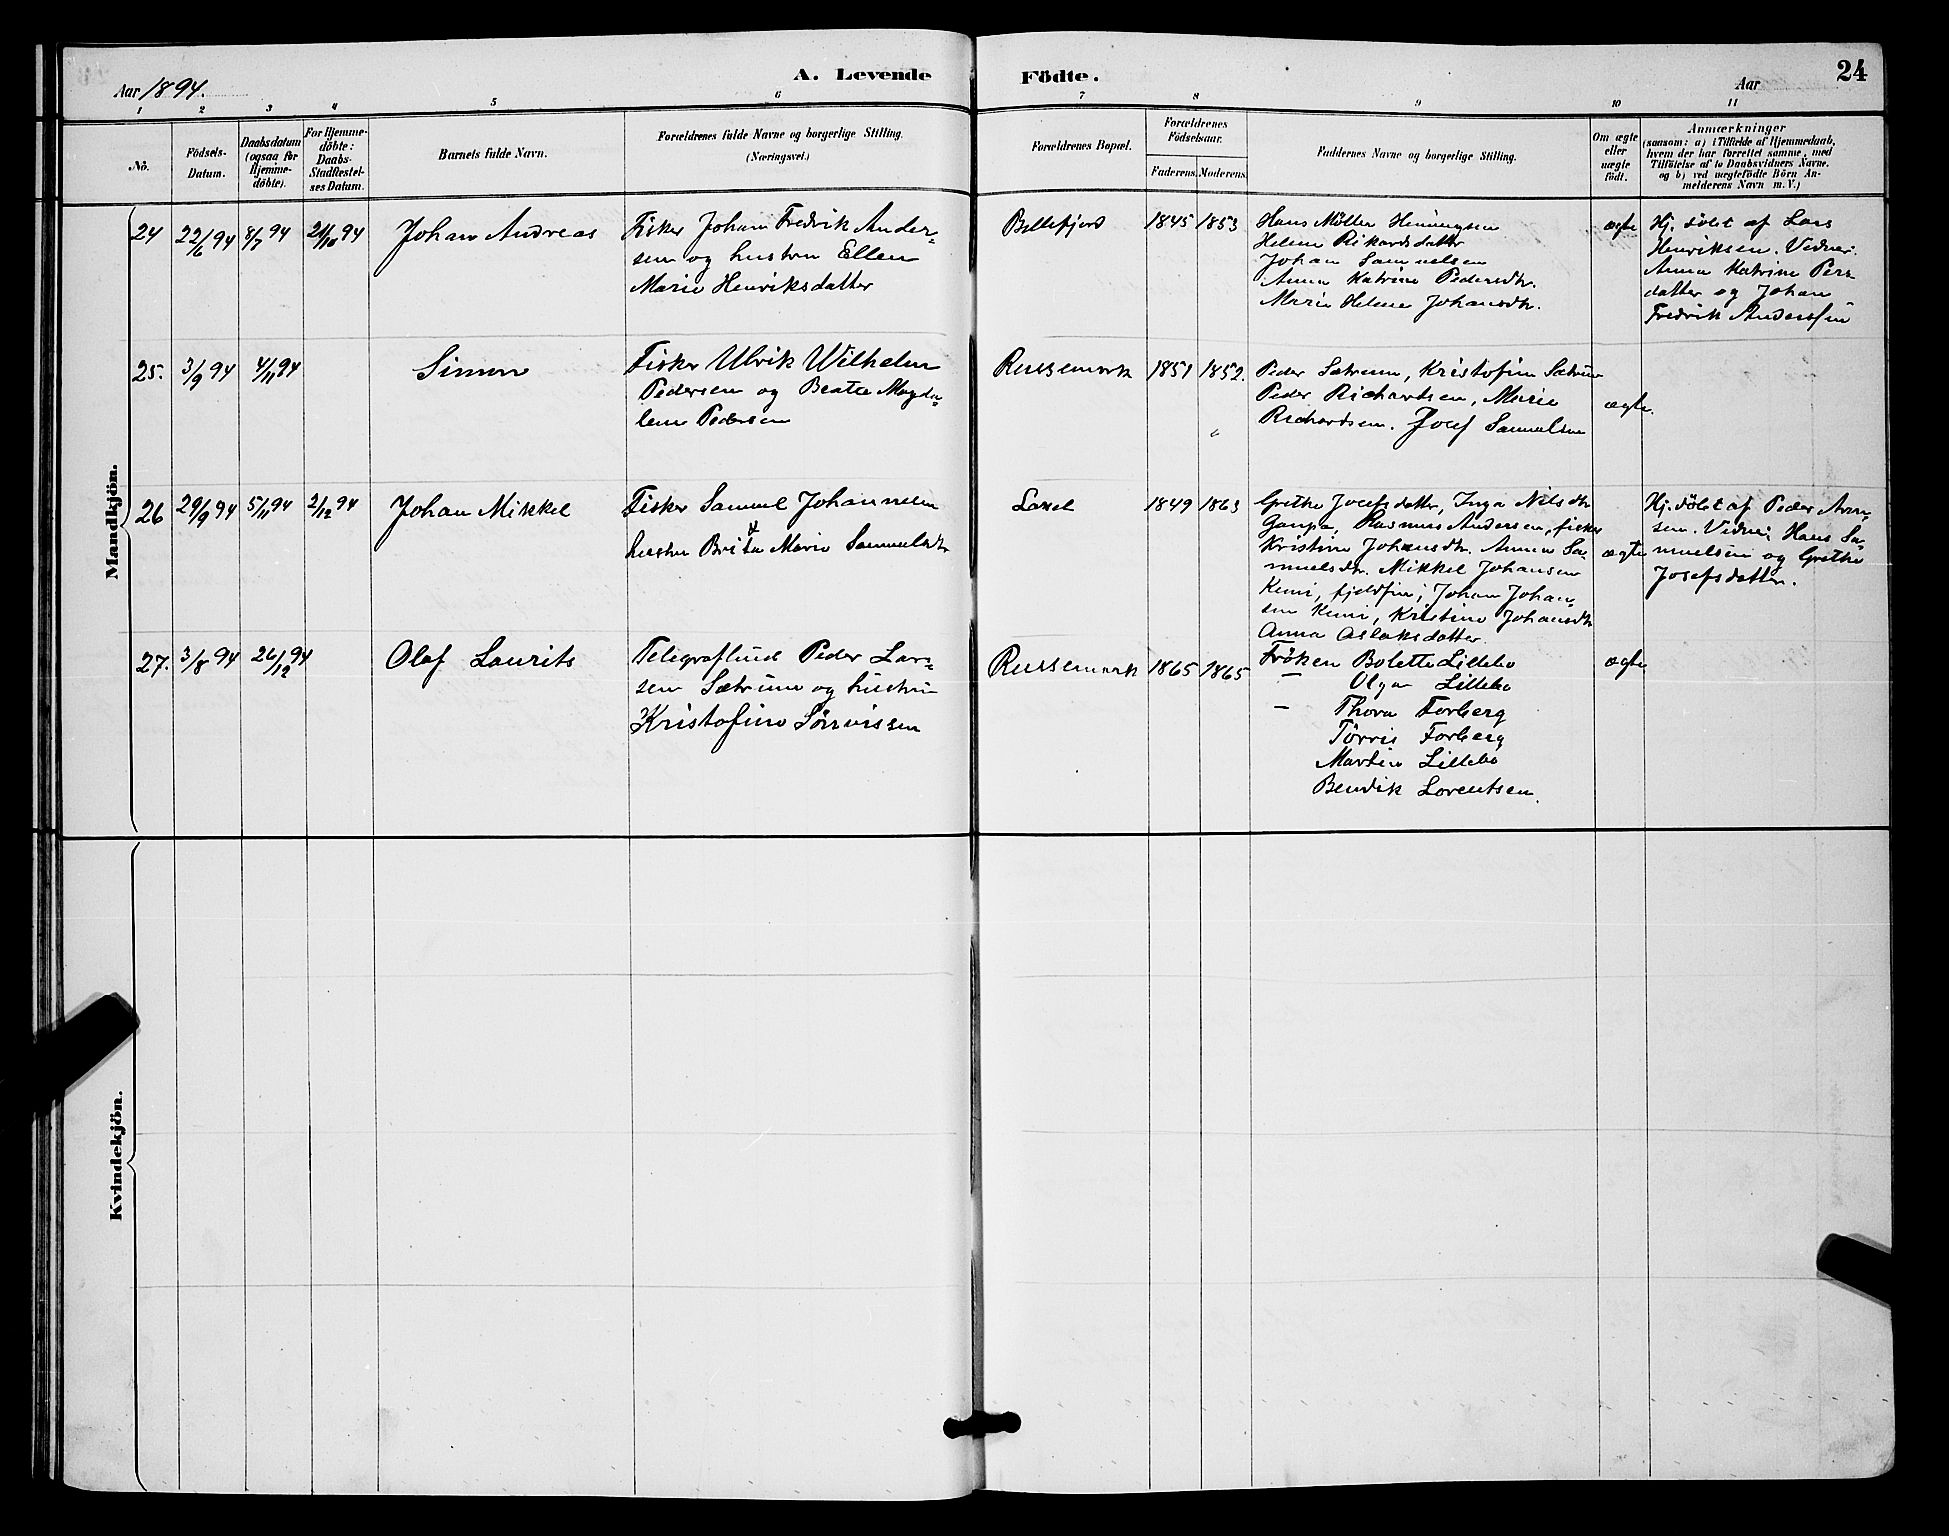 Aar 1894.
A. Levende
Födte.
Aar
24
1 2 3 4 5 6 7 8 9 10 11
Nö.
Födsels-
Datum.
Daabsdatum
(ogsaa for
Hjemme-
döbte).
For Hjemme-
döbte:
Daabs-
Stadfæstel-
ses Datum.
Barnets fulde Navn.
Forældrenes fulde Navne og borgerlige Stilling.
(Næringsvei.)
Forældrenes Bopæl.
Forældrenes
Födselsaar.
Faderens. Moderens.
Faddernes Navne og borgerlige Stilling.
Om ægte
eller
uægte
födt.
Anmærkninger
(saasom: a) i Tilfælde af Hjemmedaab,
hvem der har forrettet samme, med
Tilföielse af to Daabsvidners Navne.
og b) ved uægtefödte Börn An-
melderens Navn m. V.)
Mandkjön.
24 22/6 94 8/7 94 21/10 94
Johan Andreas
Fisker Johan Fredrik Ander-
sen og hustru Ellen
Marie Henriksdatter
Billefjord
1845 1853
Hans Möller Henningsen
Helene Rikardsdatter
Johan Samuelsen
Anna Katrine Pedersdtr.
Marie Helene Johansdtr.
ægte
Hj. döbt af Lars
Henriksen. Vidner:
Anna Katrine Pers
datter og Johan
Fredrik Anderssen
25. 3/9 94 4/11 94
Simon
Fisker Ulrik Wilhelm
Pedersen og Beate Magda-
lene Pedersen
Russemark
1851 1852.
Peder Sætrum, Kristofine Sætrum
Peder Richardsen, Marie
Richardsen. Josef Samuelsen
ægte.
26 29/9 94 5/11 94 2/12 94
Johan Mikkel
Fisker Samuel Johannesen
hustru Brita Marie Samuelsdtr
Laxel
1849 1863
Grethe Josefsdatter, Inga Nilsdtr
Gaupa, Rasmus Andersen, fisker
Kristine Johansdtr. Anna Sa-
muelsdtr. Mikkel Johansen
Kemi, fjeldfin; Johan Johan-
sen Kemi, Kristine Johansdtr
Anna Aslaksdatter.
ægte
Hj. döbt af Peder Arn-
sen. Vidner: Hans Sa-
muelsen og Grethe
Josefsdatter.
27. 3/8 94 26/12 94
Olaf Laurits
Telegraflind Peder Lar-
sen Sætrum og hustru
Kristofine Sörvissen
Russemark
1865 1865
Fröken Bolette Lillebo
— Olga Lillebo
— Thora Forberg
Törris Forberg
Martin Lillebo
Bendik Lorentsen.
ægte
Kvindekjön.